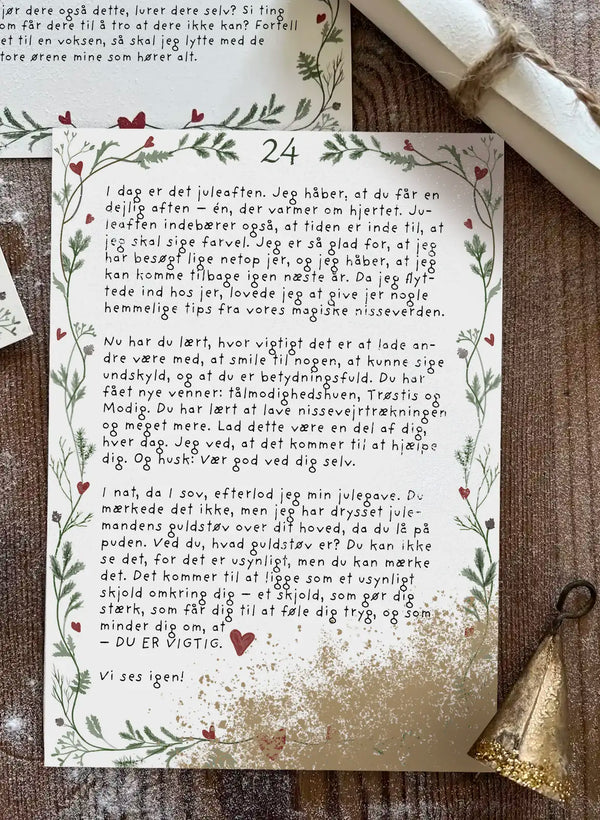 jør dere også dette, lurer dere selv? Si ting
om får dere til å tro at dere ikke kan? Fortell
et til en voksen, så skal jeg lytte med de
tore ørene mine som hører alt.
24
I dag er det juleaften. Jeg håber, at du får en
dejlig aften – én, der varmer om hjertet. Ju-
leaften indebærer også, at tiden er inde til, at
jeg skal sige farvel. Jeg er så glad for, at jeg
har besøgt lige netop jer, og jeg håber, at jeg
kan komme tilbage igen næste år. Da jeg flyt-
tede ind hos jer, lovede jeg at give jer nogle
hemmelige tips fra vores magiske nisseverden.
Nu har du lært, hvor vigtigt det er at lade an-
dre være med, at smile til nogen, at kunne sige
undskyld, og at du er betydningsfuld. Du har
fået nye venner: tålmodighedshuen, Trøstis og
Modig. Du har lært at lave nissevejrtrækningen
og meget mere. Lad dette være en del af dig,
hver dag. Jeg ved, at det kommer til at hjælpe
dig. Og husk: Vær god ved dig selv.
I nat, da I sov, efterlod jeg min julegave. Du
mærkede det ikke, men jeg har drysset jule-
mandens guldstøv over dit hoved, da du lå på
puden. Ved du, hvad guldstøv er? Du kan ikke
se det, for det er usynligt, men du kan mærke
det. Det kommer til at ligge som et usynligt
skjold omkring dig – et skjold, som gør dig
stærk, som får dig til at føle dig tryg, og som
minder dig om, at
– DU ER VIGTIG.
Vi ses igen!